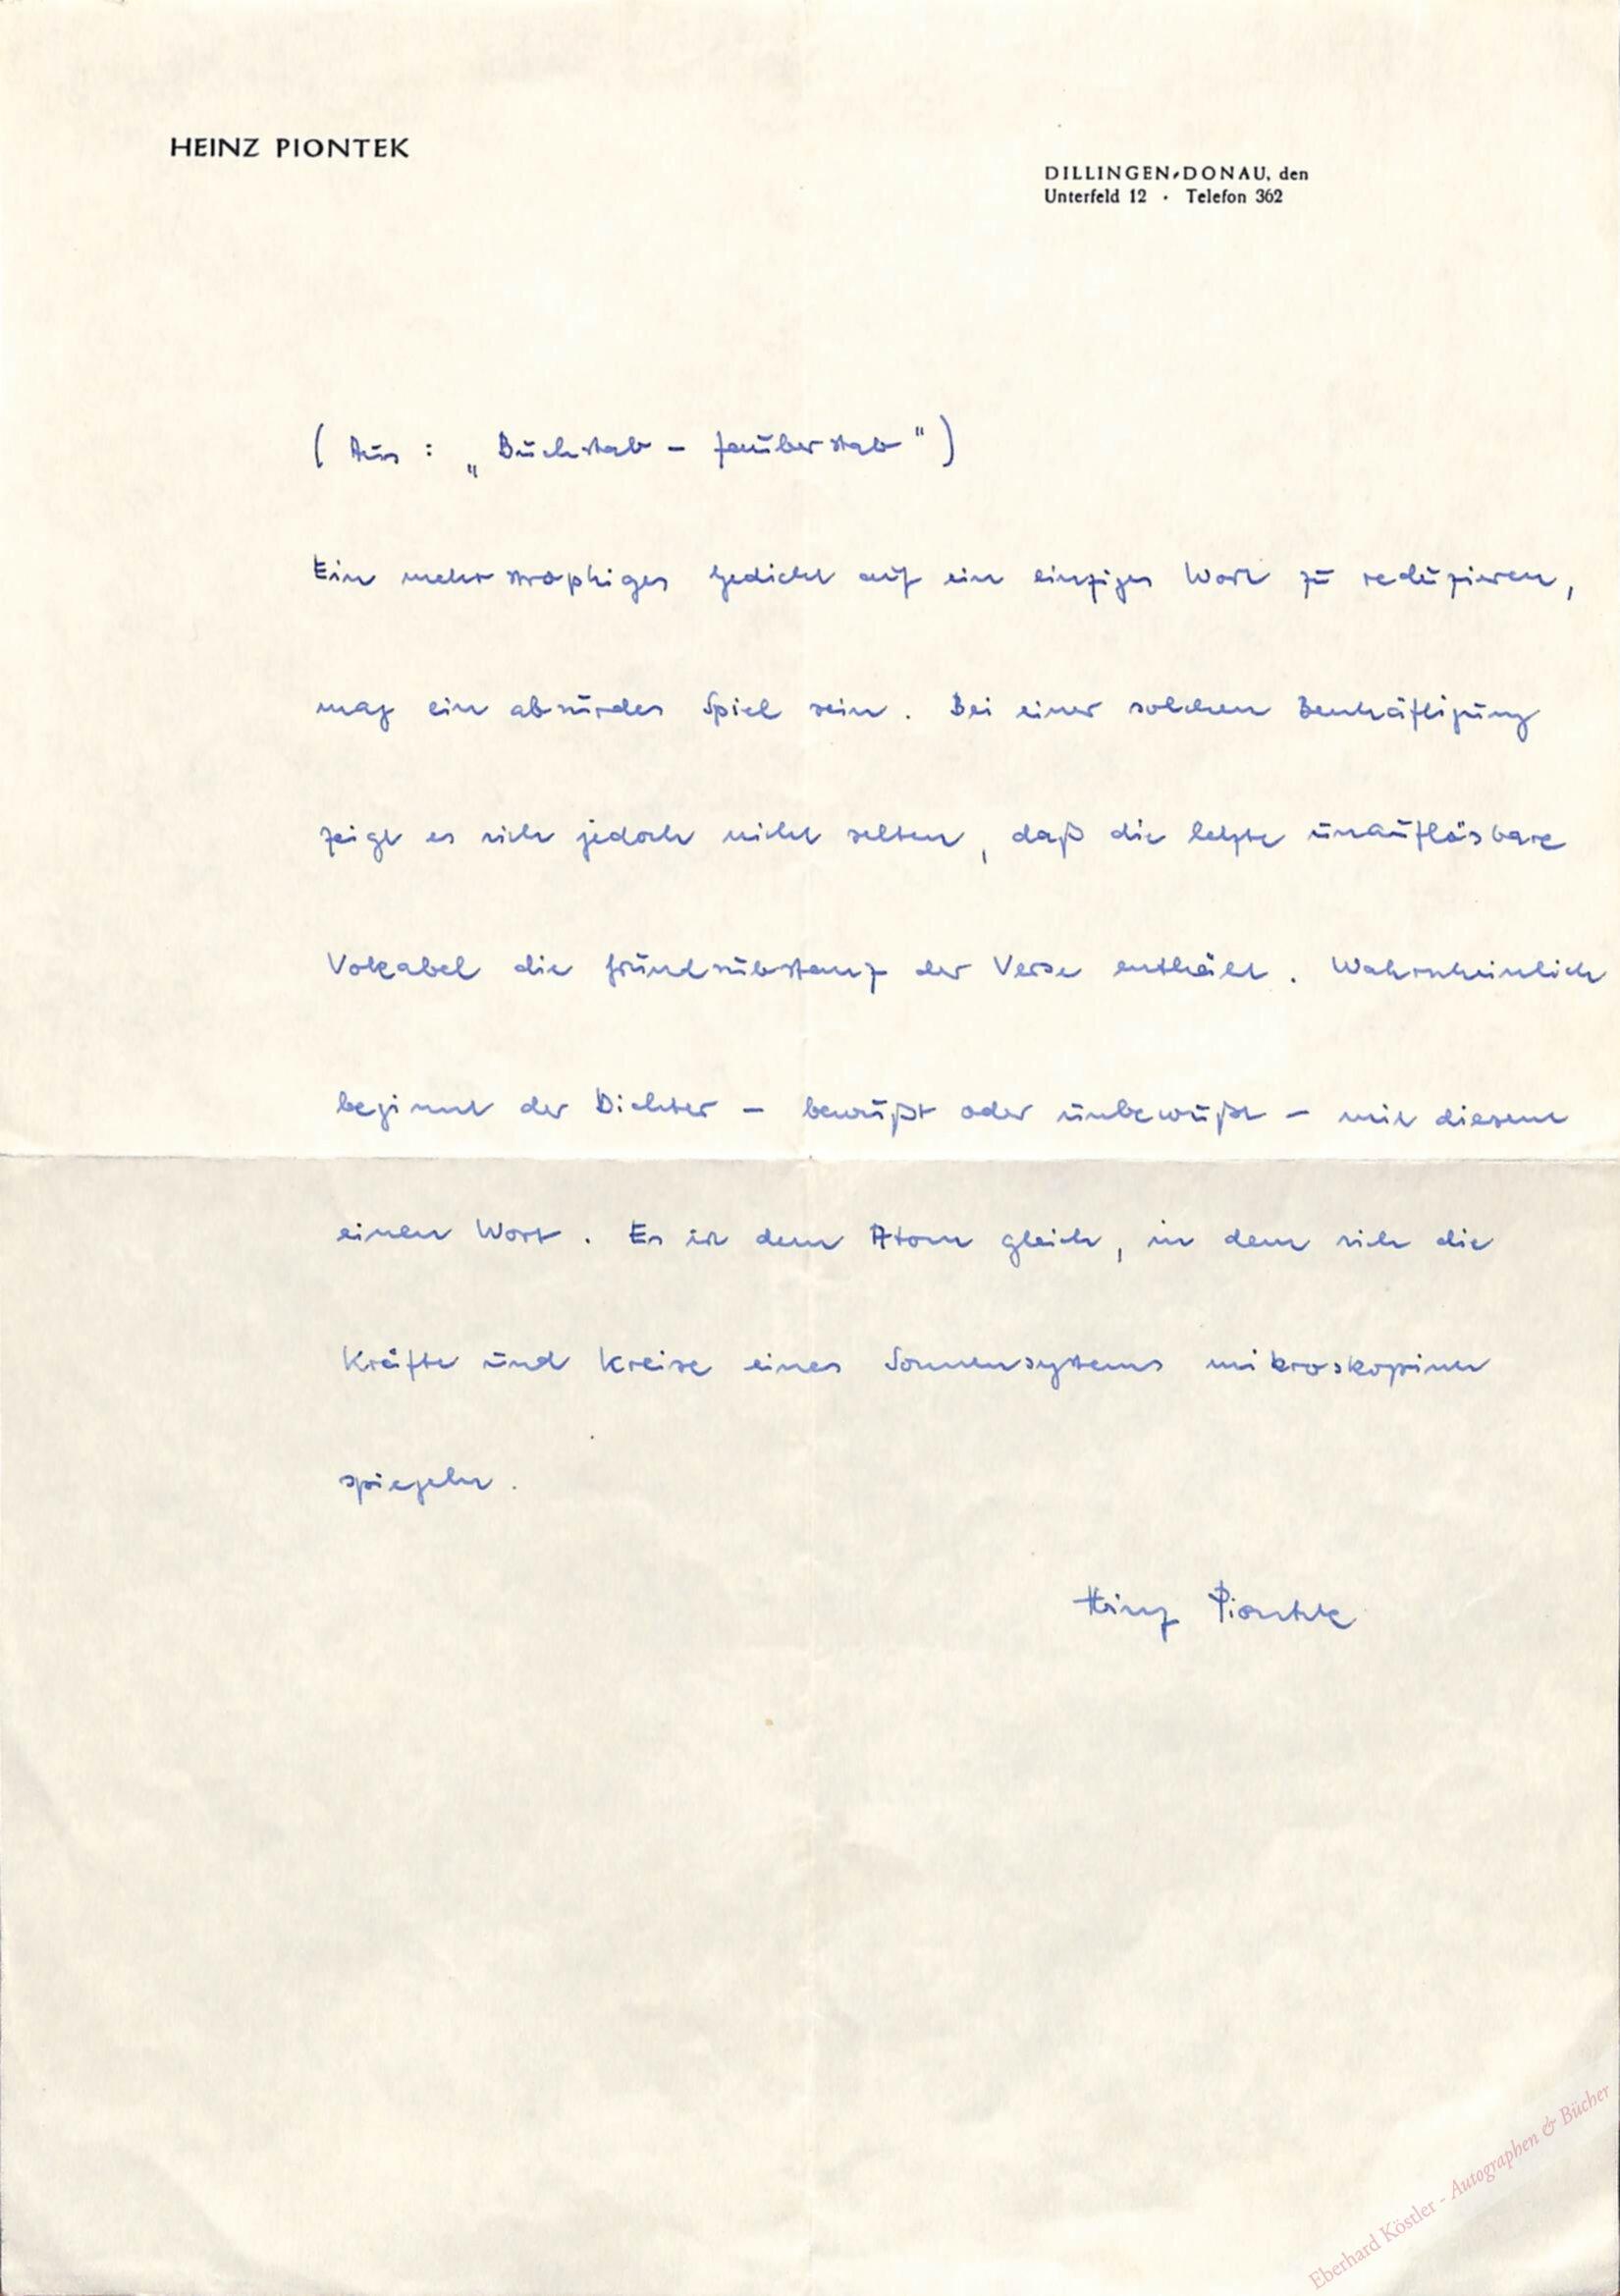 HEINZ PIONTEK
DILLINGEN-DONAU, den
Unterfeld 12 · Telefon 362
(Aus: „Buchstab – Zauberstab")
Ein mehrstrophiges Gedicht auf ein einziges Wort zu reduzieren,
mag ein absurdes Spiel sein. Bei einer solchen Beschäftigung
zeigt es sich jedoch nicht selten, daß die letzte unauflösbare
Vokabel die Grundsubstanz der Verse enthält. Wahrscheinlich
beginnt der Dichter – bewußt oder unbewußt – mit diesem
einen Wort. Es ist dem Atom gleich, in dem sich die
Kräfte und Kreise eines Sonnensystems mikroskopisch
spiegeln.
Heinz Piontek
Eberhard Köstler - Autographen & Bücher